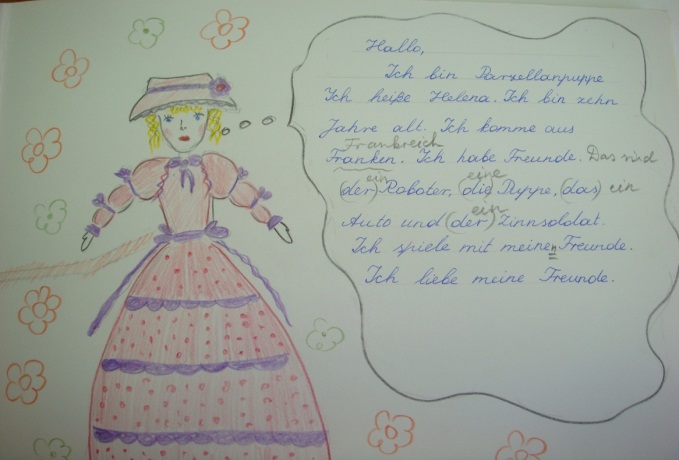 Hallo,
Ich bin Parzellanpuppe
Ich heiße Helena. Ich bin zehn
Jahre alt. Ich komme aus
Frankreich
Franken. Ich habe Freunde. Das sind
ein eine
(der) Roboter, (die) Puppe, (das) ein
ein
Auto und (der) Zinnsoldat.
Ich spiele mit meinen Freunde.
Ich liebe meine Freunde.